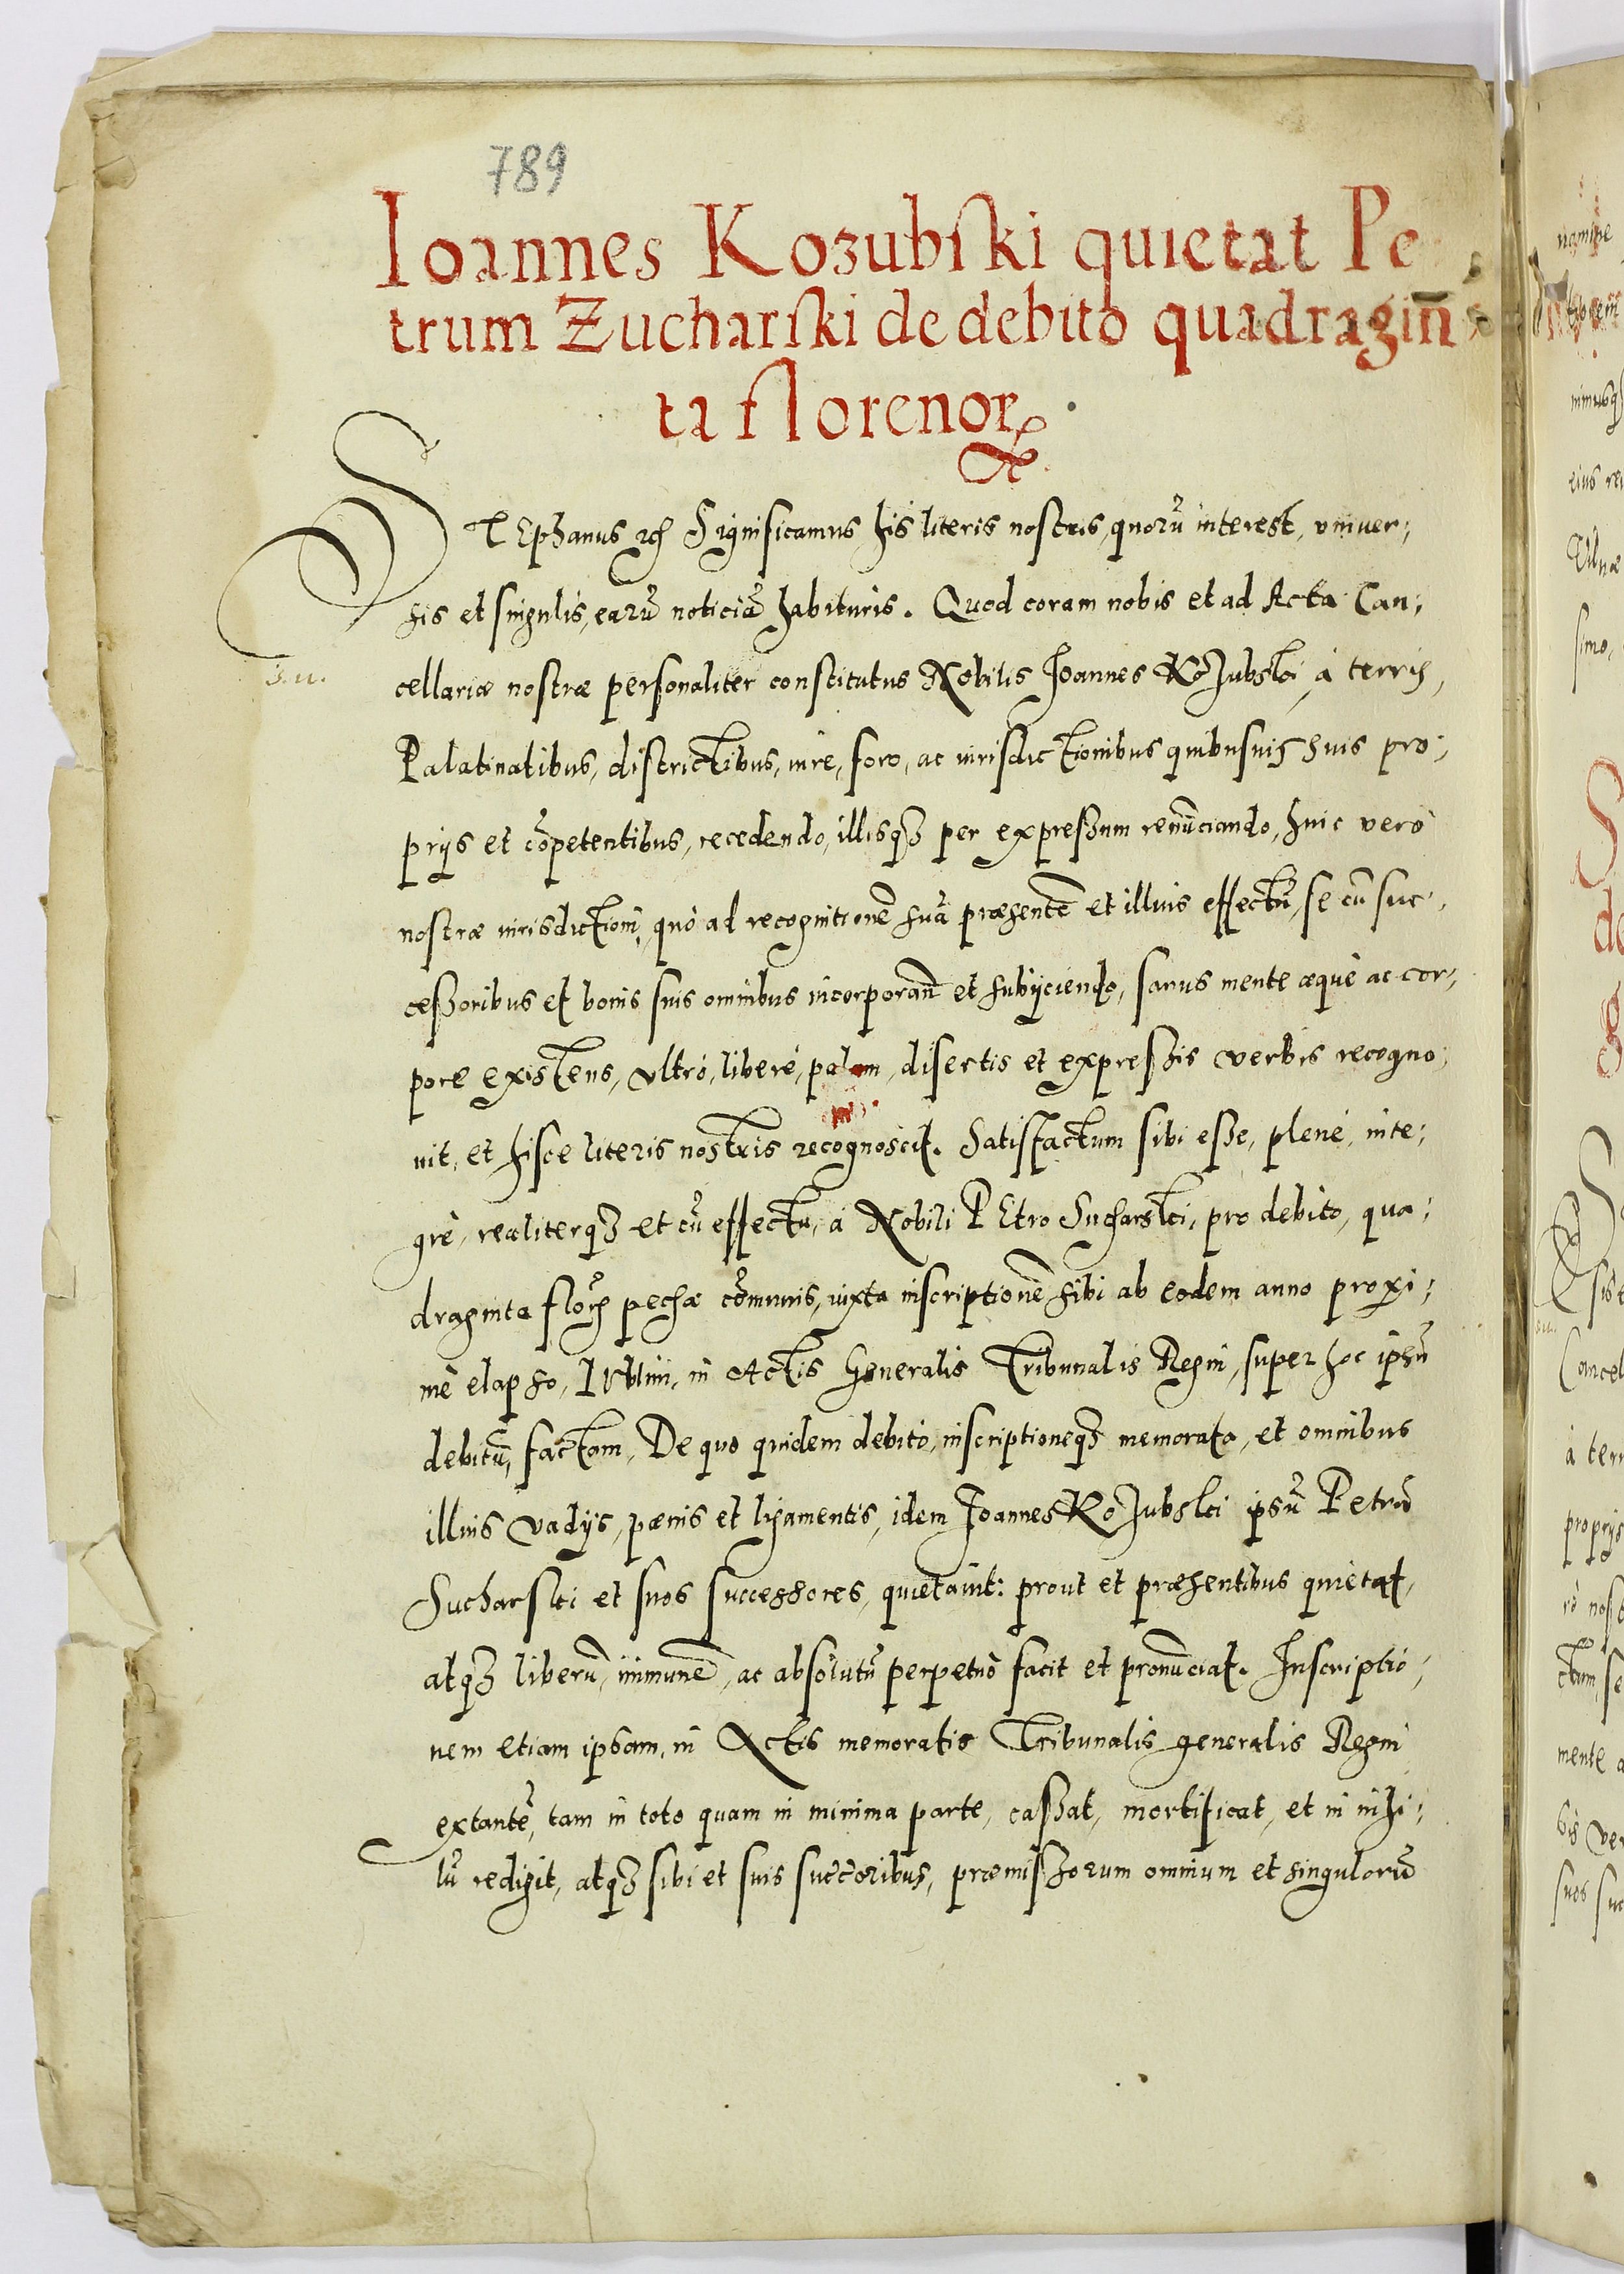 789
Ioannes Kozubski quietat Pe
trum Zucharski de debito quadragin̄
ta florenorꝝ.
STEphanus ꝛc̃ Significamus his literis nostris, quorũ interest, vniuer;
sis et singulis, earũ noticiã habituris. Quod coram nobis et ad Acta Can;
cellariæ nostræ personaliter constitutus Nobilis Joannes Kozubski, à terris,
Palatinatibus, districtibus, iure, foro, ac iurisdictionibus quibusuis suis pro;
prijs et cõpetentibus, recedendo, illisqꝫ per expressum renũciando, huic verò
nostræ iurisdictioni, quò ad recognitionẽ suã præsentẽ et illius effectũ, se cũ suc;
cessoribus et bonis suis omnibus incorporañ et subijciendo, sanus mente æquè ac cor;
pore existens, vltrò, liberè, palam, disertis et expressis verbis recogno;
uit, et hisce literis nostris recognoscit. Satisfactum sibi esse, plenè, inte;
grè, realiterqꝫ et cũ effectu, à Nobili PEtro Sucharski, pro debito, qua;
draginta floꝝ pechæ cõmunis, iuxta inscriptionẽ sibi ab eodem anno proxi;
mè elapso, Lublini, in Actis Generalis Tribunalis Regni, super hoc ipsũ
debitũ, factam, De quo quidem debito, inscriptioneqꝫ memorata, et omnibus
illius vadijs, pænis et ligamentis, idem Joannes Kozubski ipsũ Petrũ
Sucharski et suos successores, quietauit: prout et præsentibus quietat,
atqꝫ liberũ, immunẽ, ac absolutũ perpetuò facit et pronũciat. Inscriptio;
nem etiam ipsam, in Actis memoratis Tribunalis generalis Regni
extantẽ, tam in toto quam in minima parte, cassat, mortificat, et in nihi;
lũ redigit, atqꝫ sibi et suis succ̃oribus, præmissorum omnium et singulorũ